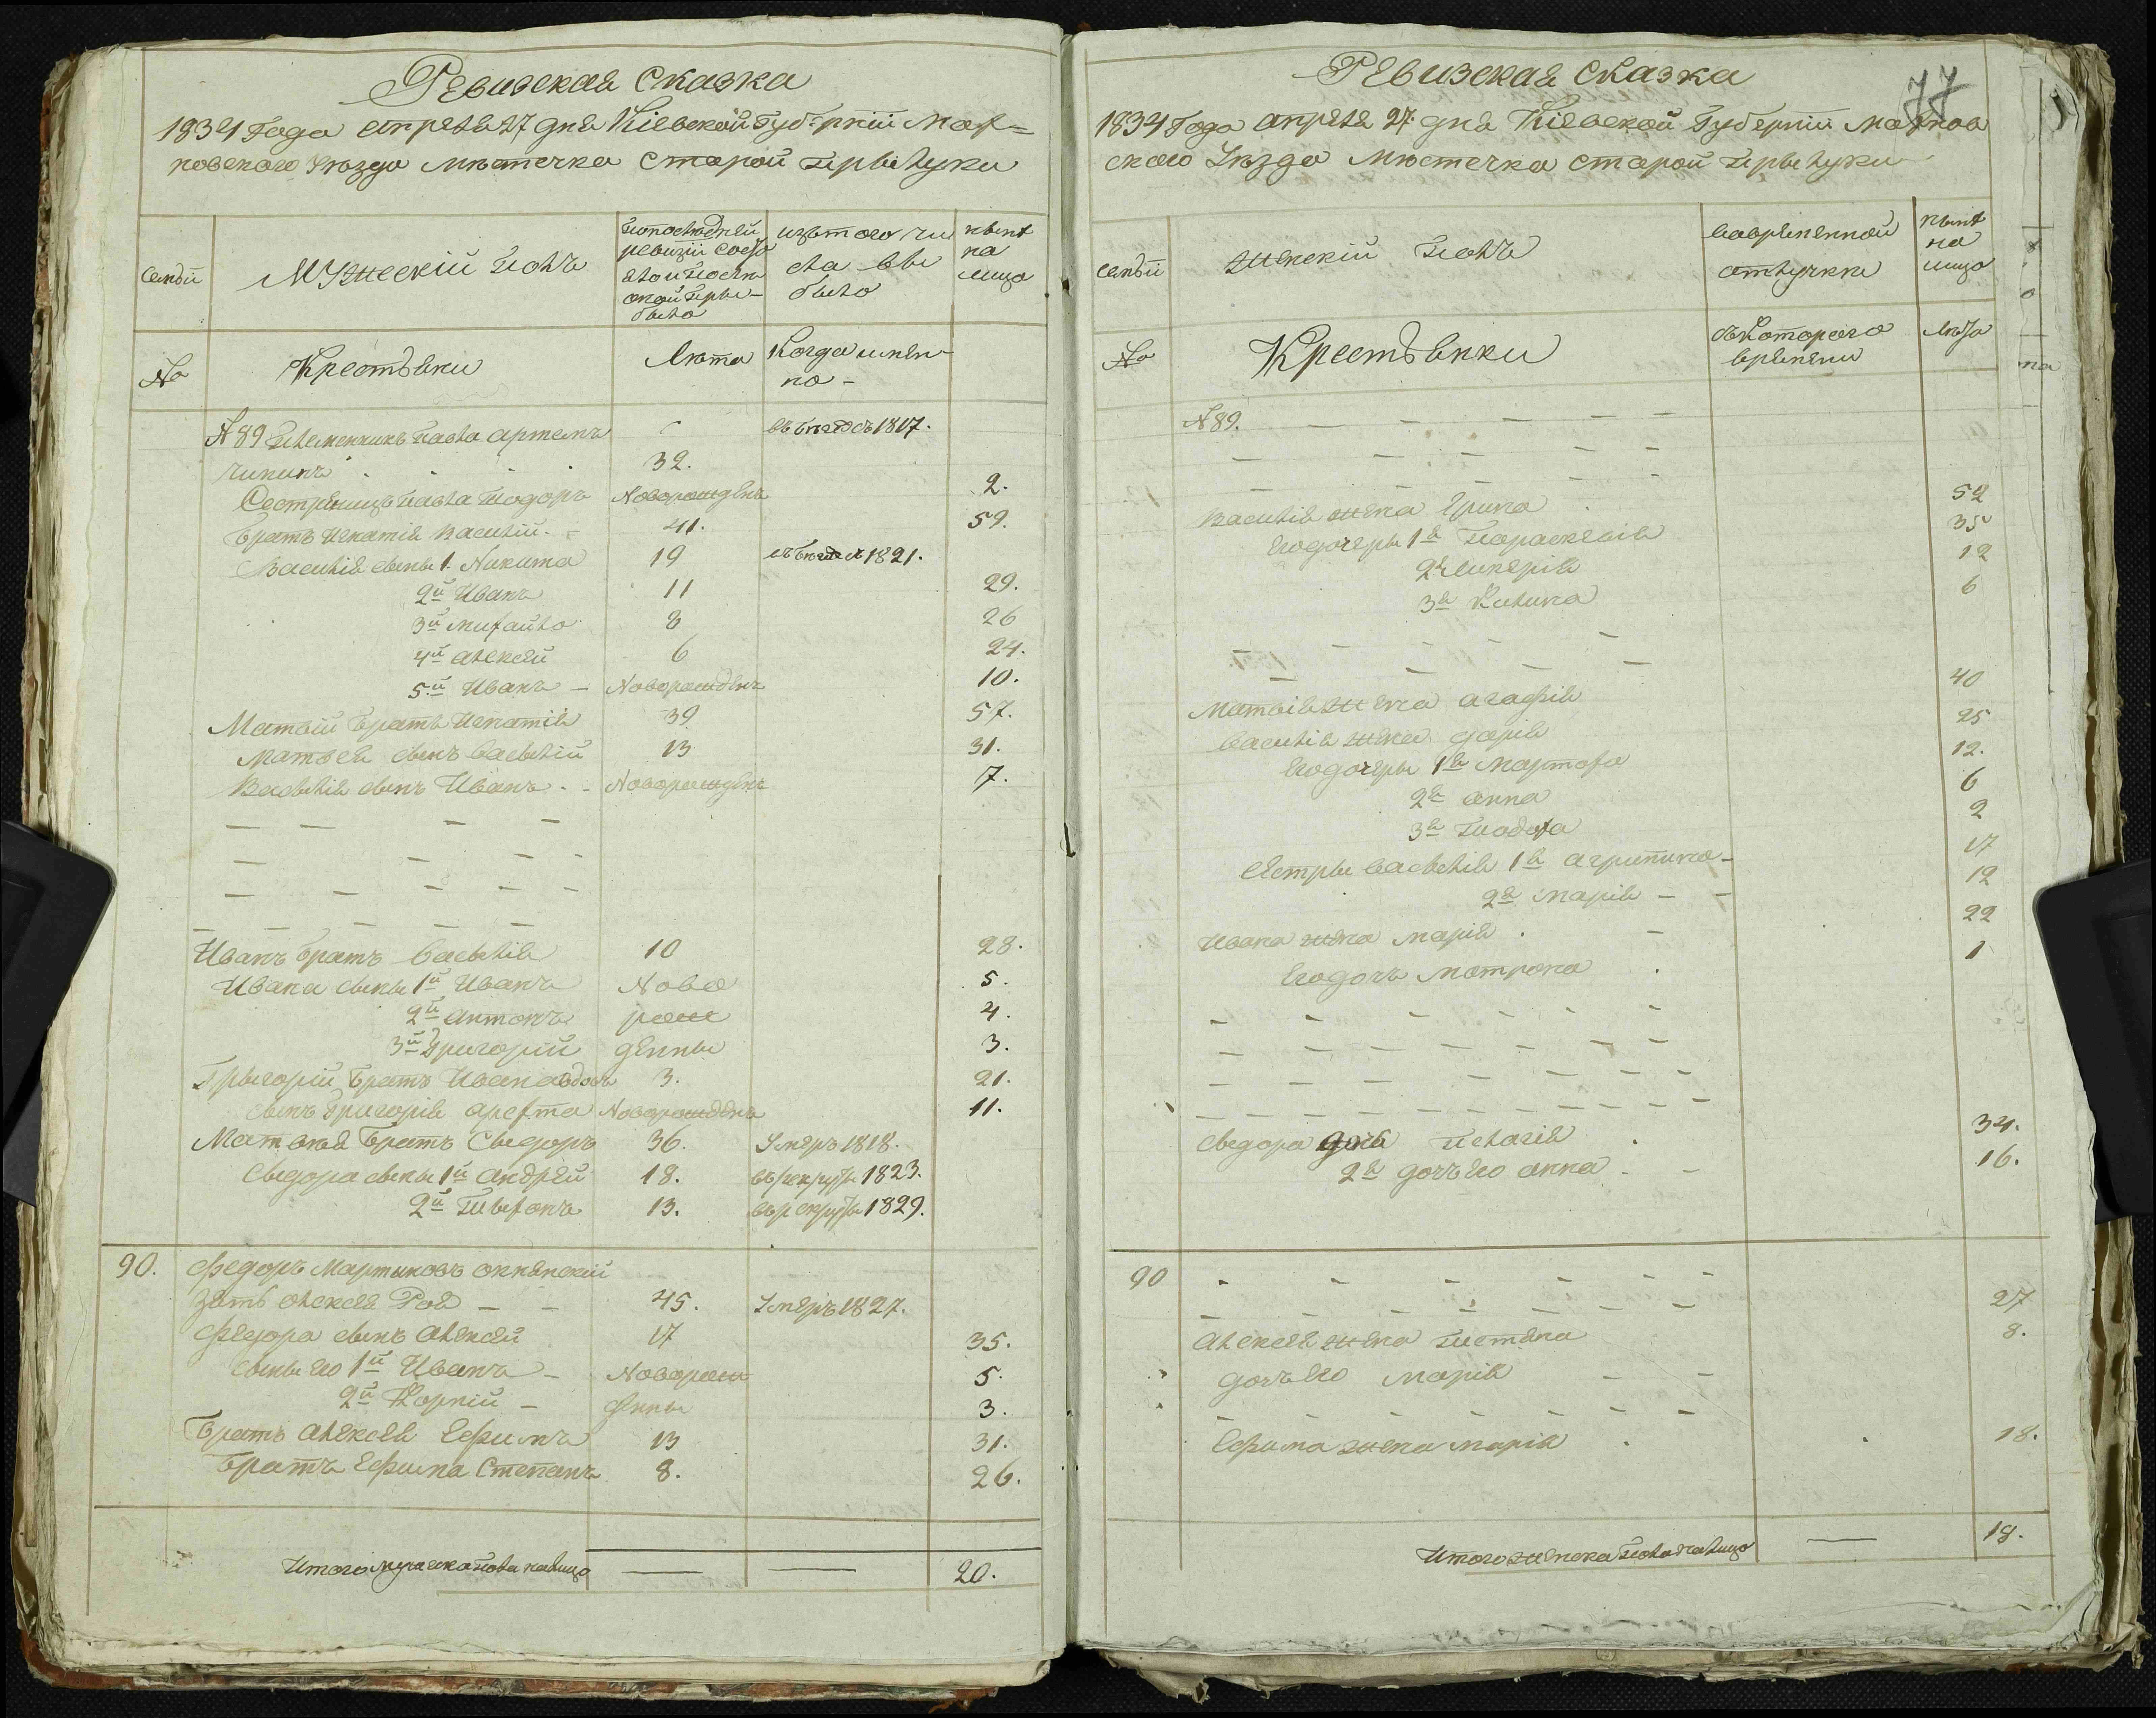 Ревизская Сказка
1834 Года апреля 27 дня Кіевской Губерніи Мах=
новского Уезда местечка Старой прылуки
семьи
Мужескій полъ
попоследней
ревизіи состо
яло и после
оной прыбыло
изътого чи
сла выбыло
ныне
на
лицо
No
Крестьяни
Лета
Когда имен-
но -
№ 89 племенникъ Павла артемъ
32.
въ бегахъ 1817.
Сестренецъ Павла Тиодоръ Новорожденъ 2.
Братъ Игнатія Василій 41. 59.
Василія сыны 1 Никита 19 въ бегахъ 1821.
2й Иванъ 11 29.
3й михайло 8 26
4й алексей 6 24.
5й Иванъ - Новорожденъ 10.
Матвій братъ Игнатія 39 57.
Матвея сынъ Василій 13 31.
Василія сынъ Иванъ - Новорожденъ 7.
Иванъ братъ Василія 10 28.
Ивана сыны 1й Иванъ Ново 5.
2й антонъ рож 4.
3й Григорій денны 3.
Грыгорій братъ Ивана 3. 21.
сынъ Григорія арехта Новорожденъ 11.
Матвея братъ Сыдоръ 36. Умеръ 1818.
Сыдора сыны 1й андрей 18. въ рекруты 1823.
2й 13. въ рекруты 1829.
90. Федоръ Мартыновъ
зять алексея Роя - - 45. Умеръ 1827.
Федора сынъ алексей 17 35.
сыны его 1й Иванъ - Новорож 5.
2й Корній - денны 3.
Братъ алексея Ефимъ 13 31.
Братъ Ефима Степанъ 8. 26.
Итого мужеска пола налицо 20.
77
Ревизская Сказка
1834 Года апреля 27 дня Кіевской Губерніи Махнов
ского Уезда местечка Старой прылуки
семьи
женскій полъ
вовременной
отлучки
ныне
на
лицо
No
Крестьянки
съкоторого
времени
лета
№ 89.
Василія жена Ірина 52
Его дочеры 1я Параскевія 35
2я Ликерія 12
3я Килина 6
Матвія жена агафія 40
Василія жена дарія 25
Его дочеры 1я Мартофа 12.
2я анна 6
3я Тиодора 2
Сестры Василія 1я агрипина - 17
2я Марія - - 12
Ивана жена Марія 22
Его дочъ Матрона 1
Сыдора Пелагія 34.
2я дочъ его анна 16.
90
алексея жена Тистяна 27
дочъ его Марія 8.
Ефима жена Марія 18.
Итого женска пола налицо 18.